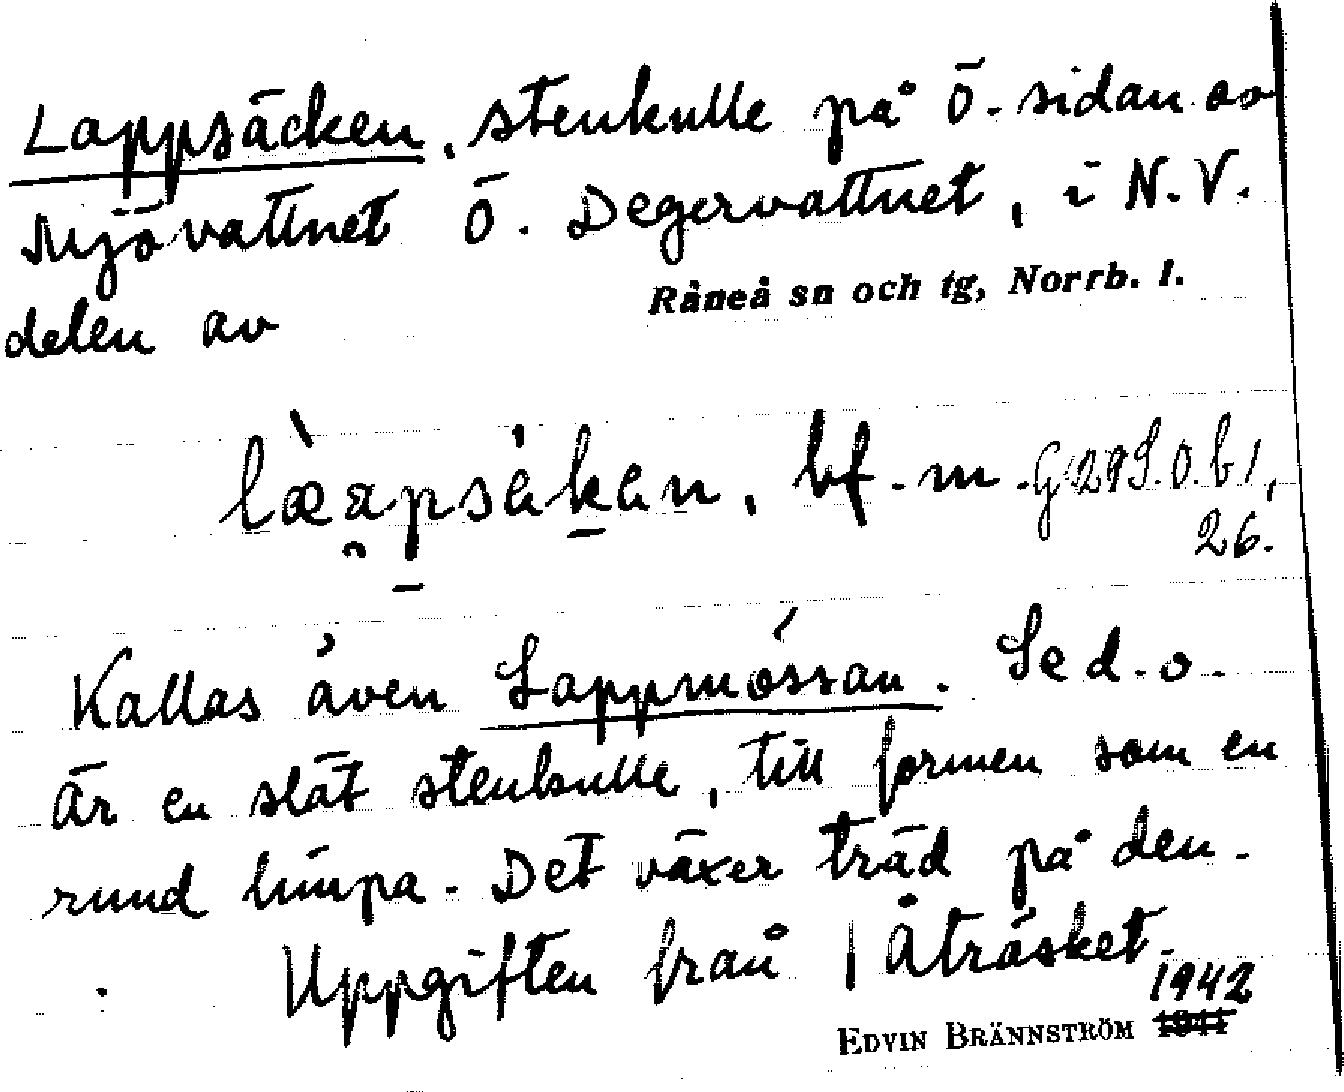 Lappsäcken, stenkulle på Ö. sidan av
Mjövattnet Ö. Degervattnet, i N.V.
Råneå sn och tg, Norrb. l.
delen av
bf. m. G 29 S.O. b 1,
26.
Kallas även Lappmössan. Se d. o.
Är en slät stenkulle, till formen som en
rund limpa. Det växer träd på den.
Uppgiften från Åträsket.
1942
EDVIN BRÄNNSTRÖM 1941